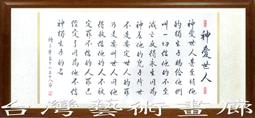 神愛世人
神愛世人甚至將他
的獨生子賜給他們
叫一切信他的不至
滅亡反得永生因為
神差他的兒子降世
不是要定世人的罪
乃是要叫世人因他
得救信他的人不被
定罪不信的人罪已
神獨生子的名
台灣藝術畫廊